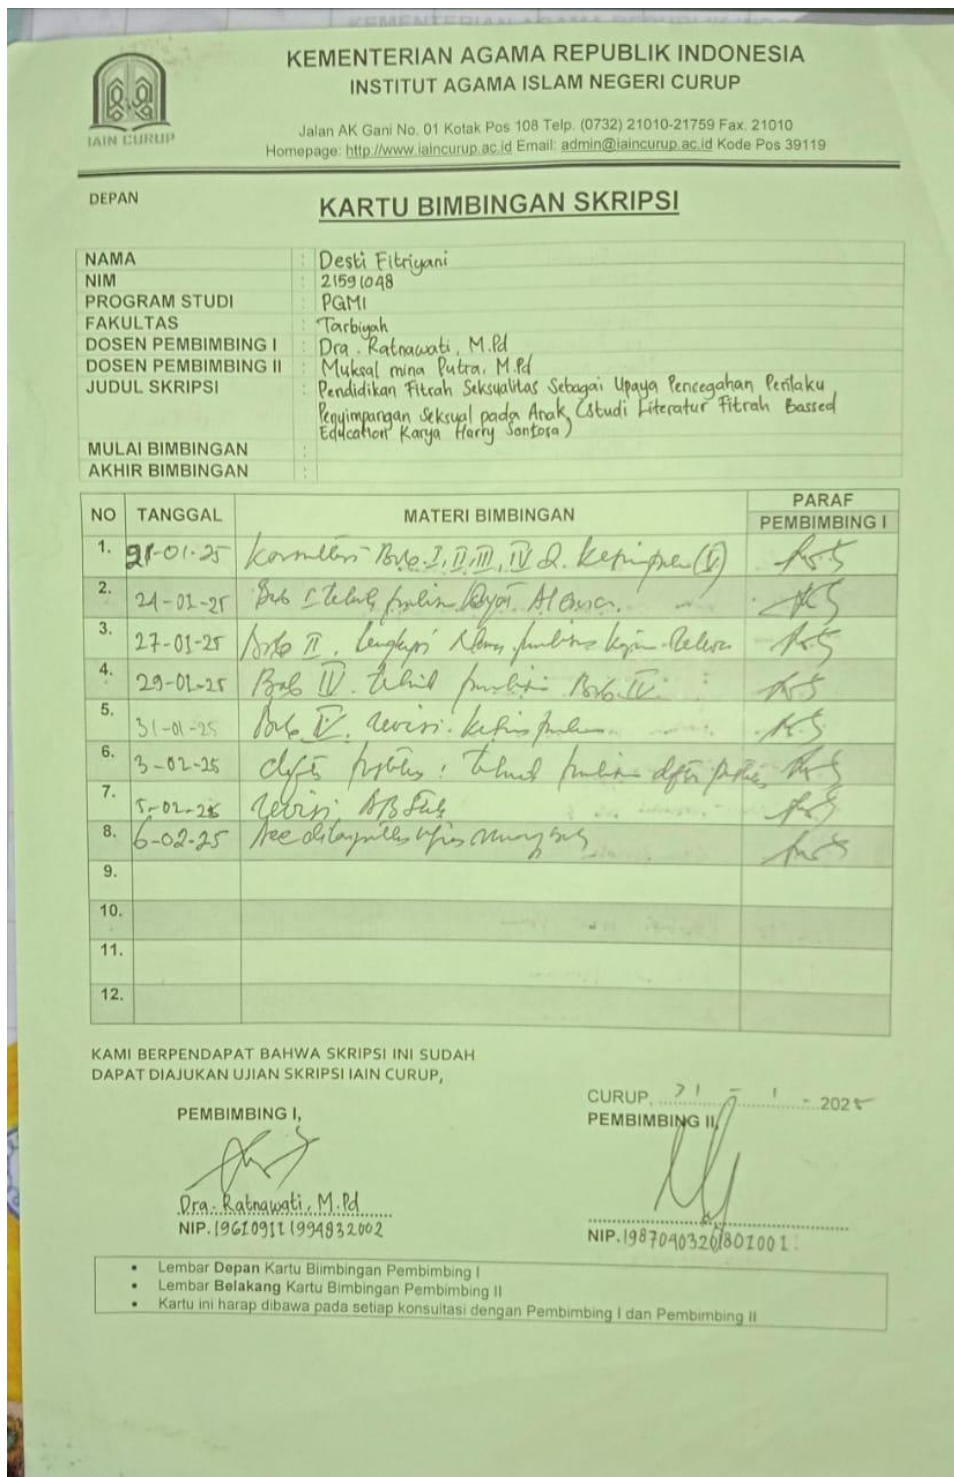 KEMENTERIAN AGAMA REPUBLIK INDONESIA
INSTITUT AGAMA ISLAM NEGERI CURUP
Jalan AK Gani No. 01 Kotak Pos 108 Telp. (0732) 21010-21759 Fax. 21010
Homepage: http://www.iaincurup.ac.id Email: admin@iaincurup.ac.id Kode Pos 39119
IAIN CURUP
DEPAN
KARTU BIMBINGAN SKRIPSI
NAMA : Desti Fitriyani
NIM : 21591048
PROGRAM STUDI : PGMI
FAKULTAS : Tarbiyah
DOSEN PEMBIMBING I : Dra. Ratnawati, M.Pd
DOSEN PEMBIMBING II : Muksal mina Putra, M.Pd
JUDUL SKRIPSI : Pendidikan Fitrah Seksualitas Sebagai Upaya Pencegahan Perilaku
Penyimpangan Seksual pada Anak (Studi Literatur Fitrah Bassed
Education Karya Harry Santosa)
MULAI BIMBINGAN :
AKHIR BIMBINGAN :
NO TANGGAL MATERI BIMBINGAN PARAF
PEMBIMBING I
1. 21-01-25 I, II, III, IV (V)
2. 24-01-25 Bab I
3. 27-01-25 Bab II
4. 29-01-25 Bab IV Bab IV
5. 31-01-25 Bab V revisi
6. 3-02-25
7. 5-02-25 revisi
8. 6-02-25 Acc
9.
10.
11.
12.
KAMI BERPENDAPAT BAHWA SKRIPSI INI SUDAH
DAPAT DIAJUKAN UJIAN SKRIPSI IAIN CURUP,
CURUP, 31 - 1 - 2025
PEMBIMBING I,
PEMBIMBING II,
Dra. Ratnawati, M.Pd
NIP.
NIP. 19870403201801001
• Lembar Depan Kartu Biimbingan Pembimbing I
• Lembar Belakang Kartu Bimbingan Pembimbing II
• Kartu ini harap dibawa pada setiap konsultasi dengan Pembimbing I dan Pembimbing II